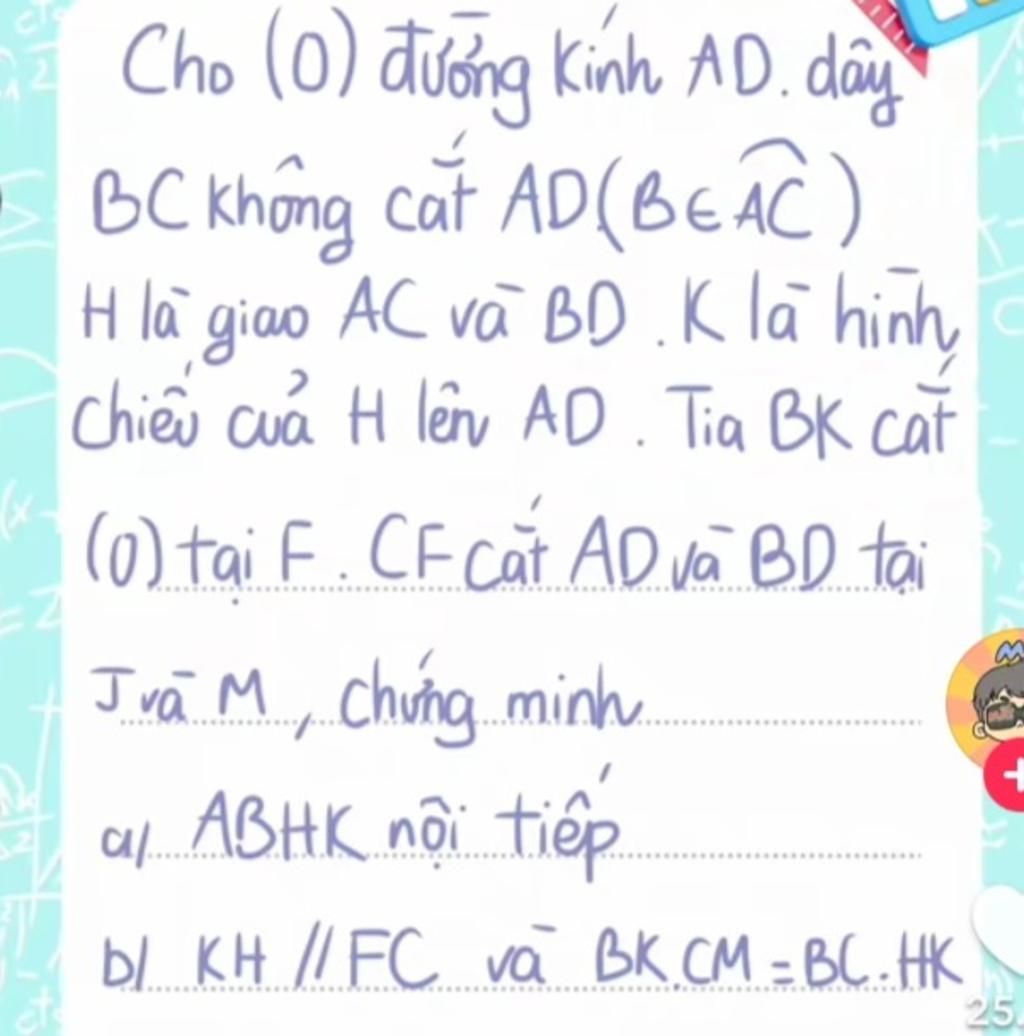 Cho (O) đường kính AD. dây
BC không cắt AD (B ∈ AC)
H là giao AC và BD. K là hình
chiếu của H lên AD. Tia BK cắt
(O) tại F. CF cắt AD và BD tại
J và M, chứng minh
a/ ABHK nội tiếp
b/ KH // FC và BK.CM = BC.HK
25